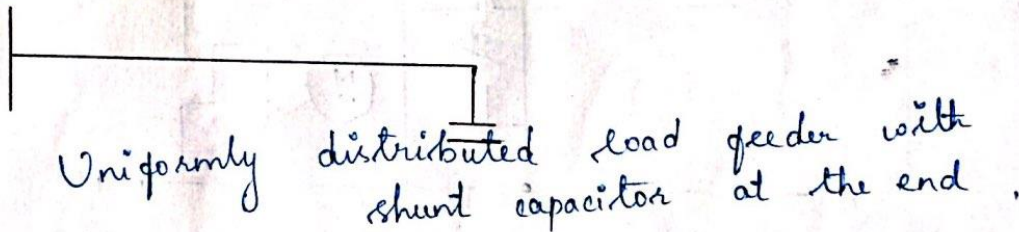 Uniformly distributed load feeder with
shunt capacitor at the end .